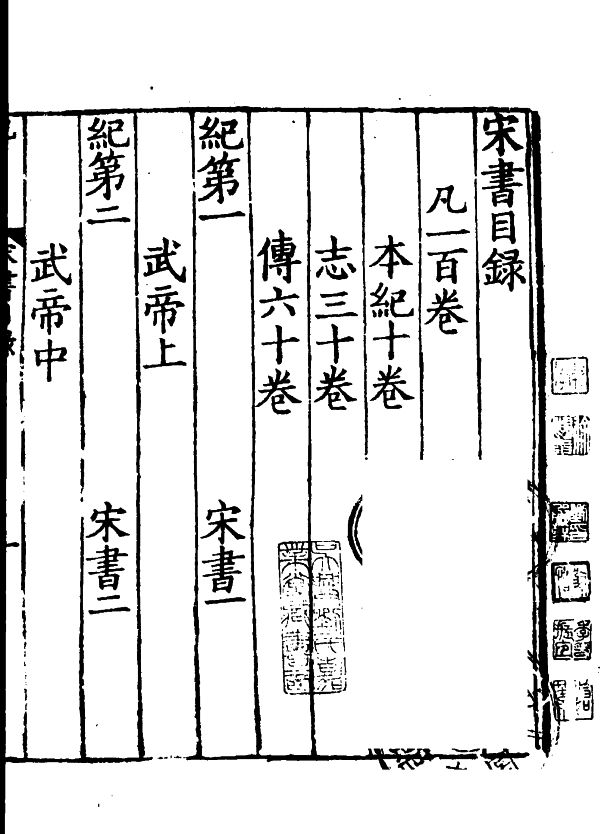 宋書目錄
凡一百卷
本紀十卷
志三十卷
傳六十卷
紀第一　宋書一
武帝上
紀第二　宋書二
武帝中